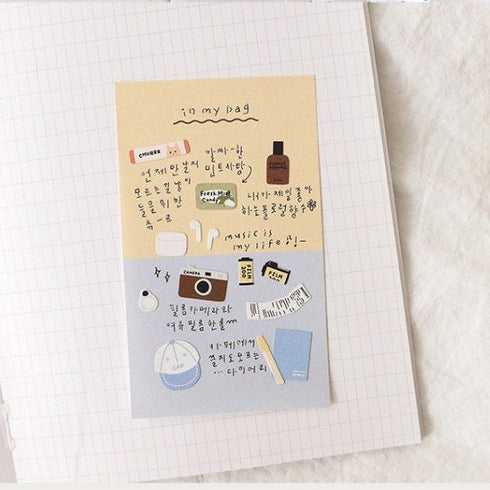 in my bag
CHURRR
언제 만날지
모르는 길냥이
들을 위한
츄-르
알싸-한
민트사탕
Fresh Mint
Candy
내가 제일 좋아
하는 플로럴향수
music is
my life♪!-
CAMERA
FILM
200
FILM
필름카메라와
여유필름한롤
CAP
카페에서
쓸지도모르는
...다이어리